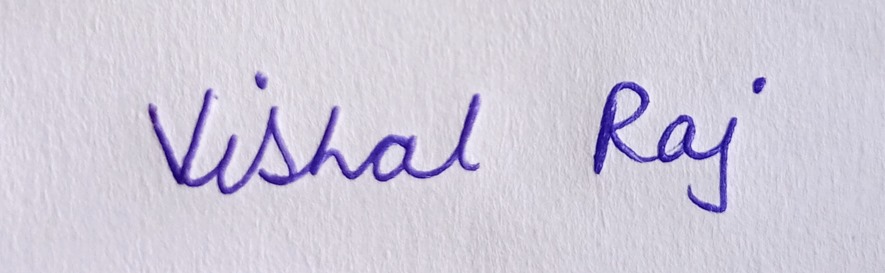 Vishal Raj